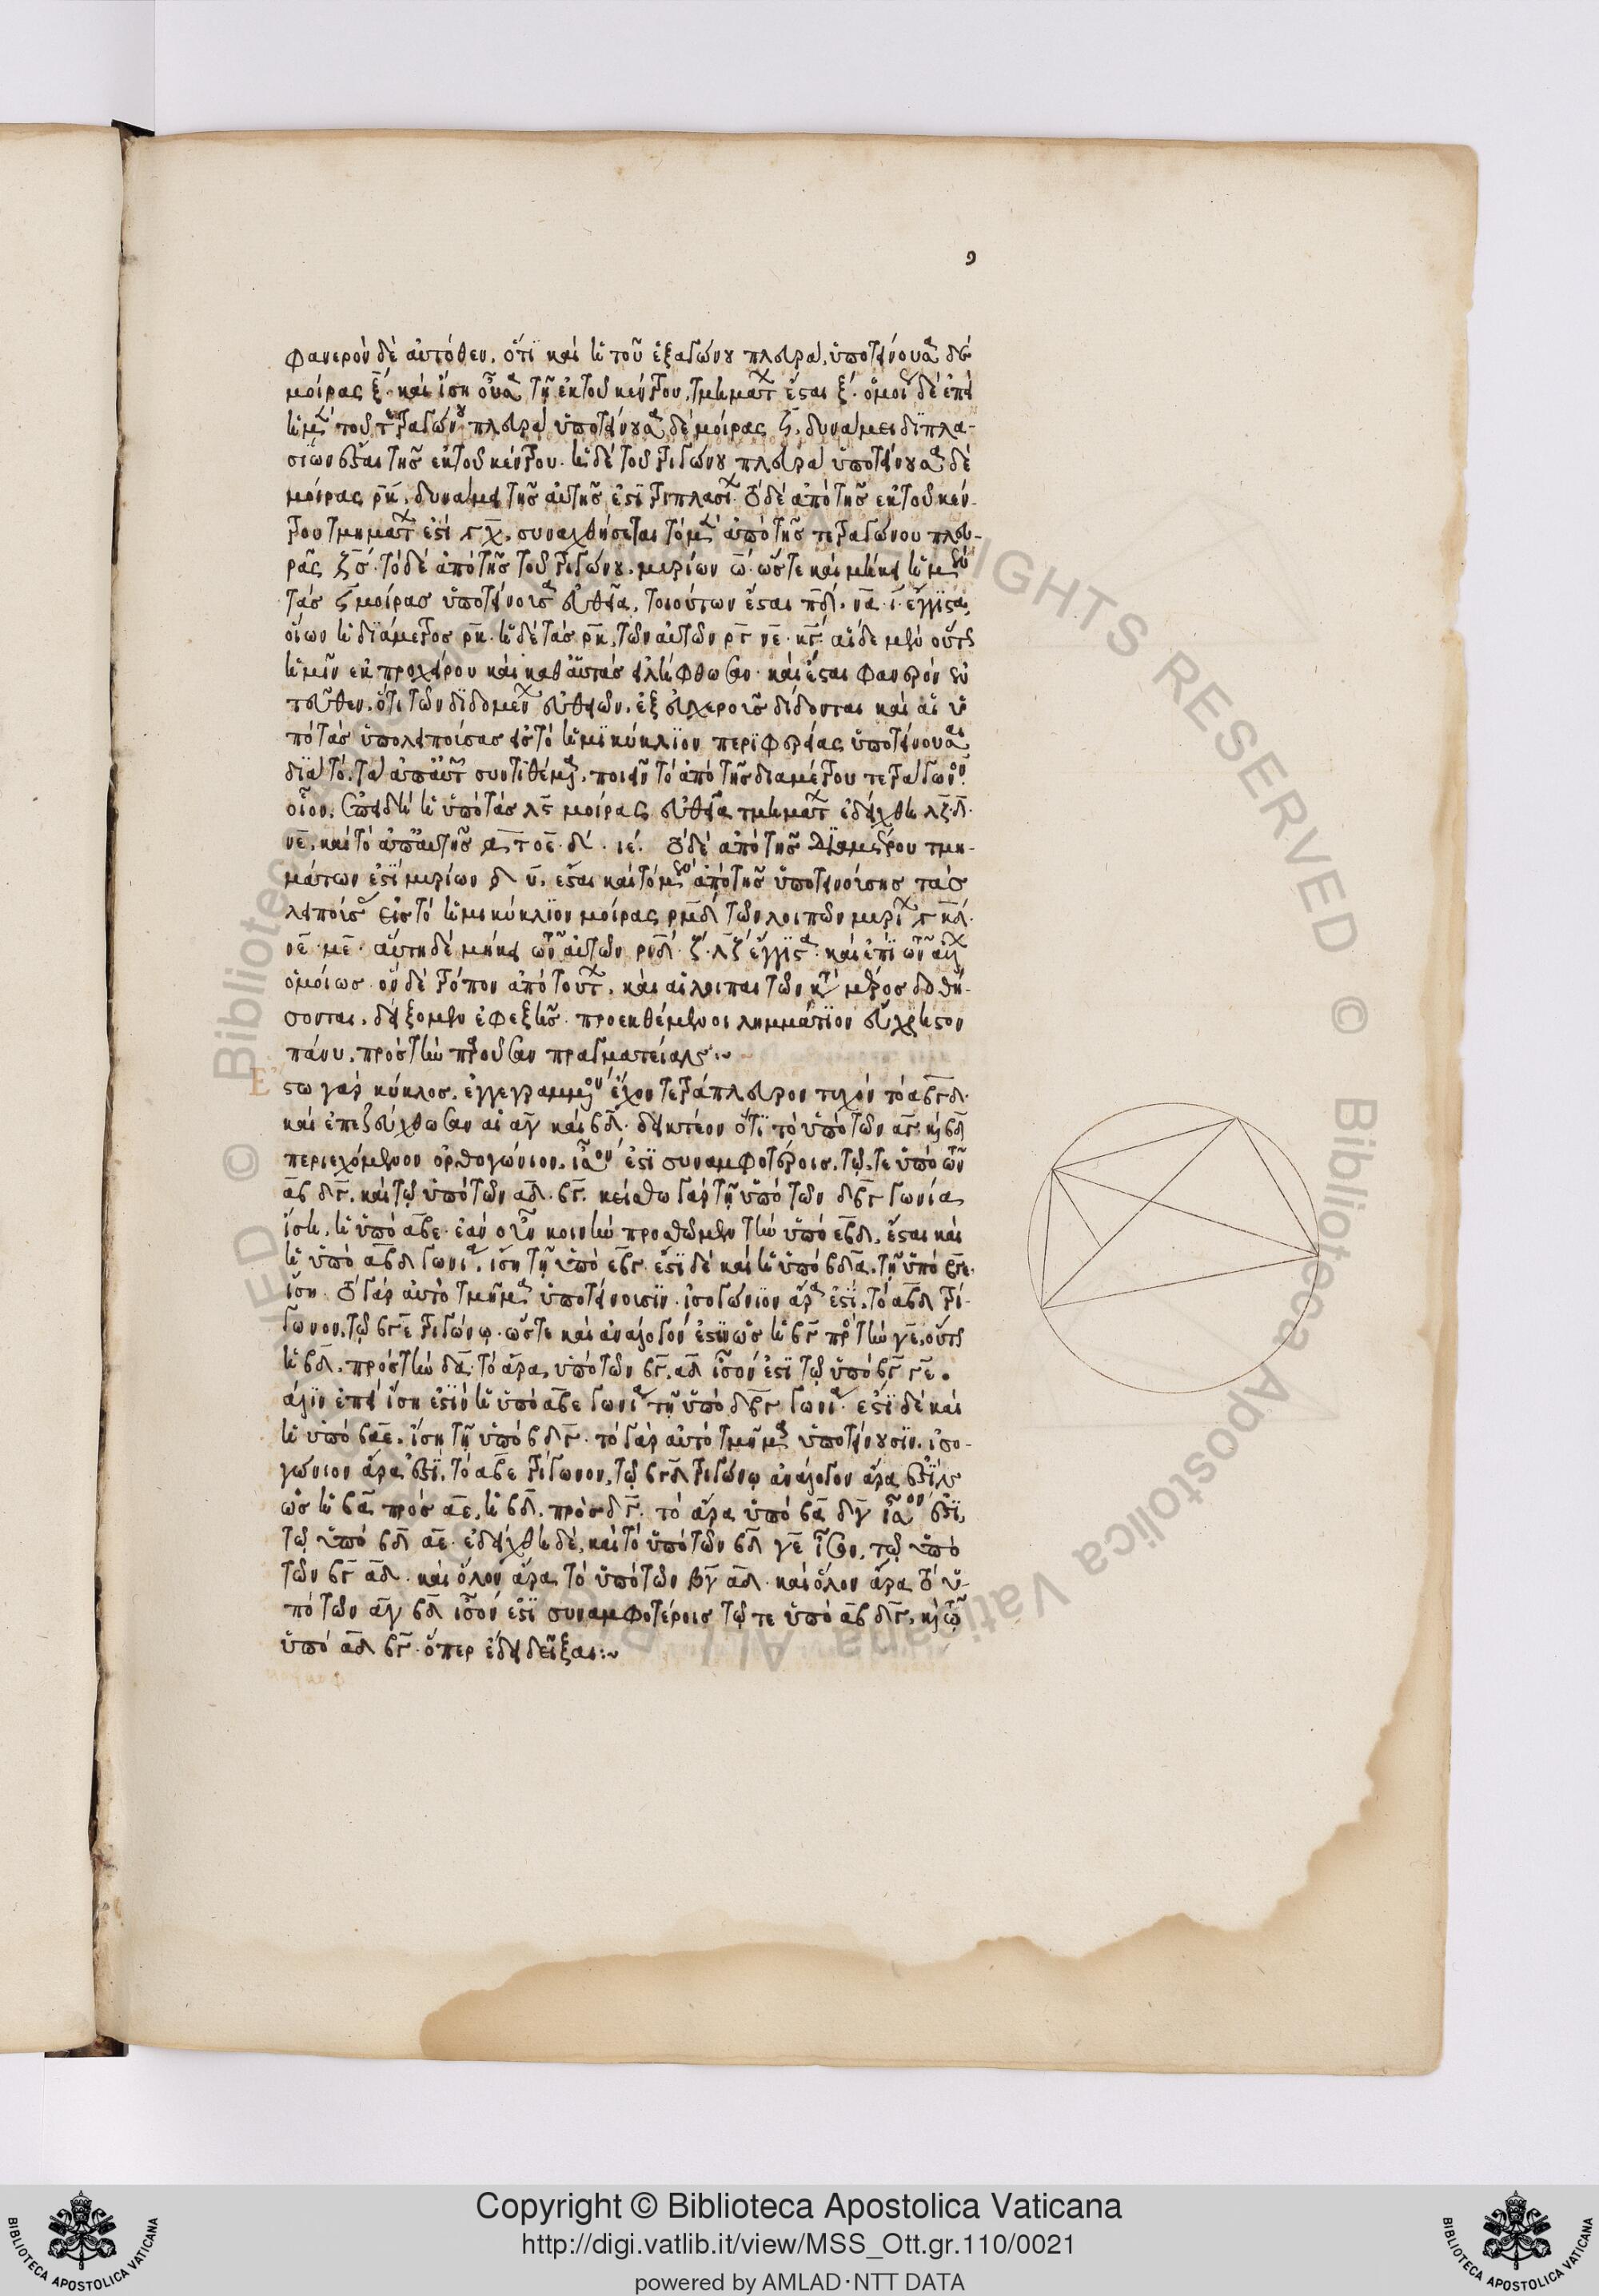 9
φανερὸν δὲ αὐτόθεν. ὅτι καὶ ἡ τοῦ ἑξαγώνου πλευρά, ὑποτείνουσα δὲ
μοίρας ξ. καὶ ἴση οὖσα τῇ ἐκ τοῦ κέντρου, τμημάτων ἔσται ξ. ὁμοίως δὲ ἐπεὶ
ἡ μὲν τοῦ τετραγώνου πλευρὰ ὑποτείνουσα δὲ μοίρας ϟ, δυνάμει διπλα-
σίων ἐστὶ τῆς ἐκ τοῦ κέντρου. ἡ δὲ τοῦ τριγώνου πλευρὰ ὑποτείνουσα δὲ
μοίρας ρκ, δυνάμει τῆς αὐτῆς ἐστὶ τριπλασίων. τὸ δὲ ἀπὸ τῆς ἐκ τοῦ κέν-
τρου τμημάτων ἐστὶ γχ, συναχθήσεται τὸ μὲν ἀπὸ τῆς τετραγώνου πλευ-
ρᾶς ζς. τὸ δὲ ἀπὸ τῆς τοῦ τριγώνου. μυρίων ω. ὥστε καὶ μήκει ἡ μὲν
τὰς ϟ μοίρας ὑποτείνουσα εὐθεῖα, τοιούτων ἔσται πδ. να. ι. ἔγγιστα,
οἵων ἡ διάμετρος ρκ. ἡ δὲ τὰς ρκ, τῶν αὐτῶν ργ νε. κγ. αἵδε μὲν οὕτως
ἡμῖν ἐκ προχείρου καὶ καθ αὑτὰς εἰλήφθωσαν. καὶ ἔσται φανερὸν ἐν
τεῦθεν. ὅτι τῶν διδομένων εὐθειῶν. ἐξ εὐχεροῦς δίδονται καὶ αἱ ὑ
πὸ τὰς ὑπολειπούσας εἰς τὸ ἡμικύκλιον περιφερείας ὑποτείνουσαι
διὰ τὸ. τὰ ἀπ αὐτῶν συντιθέμενα. ποιεῖν τὸ ἀπὸ τῆς διαμέτρου τετράγωνον.
οἷον. ἐπειδὴ ἡ ὑπὸ τὰς λς μοίρας εὐθεῖα τμημάτων ἐδείχθη λζ. δ.
νε. καὶ τὸ ἀπ αὐτῆς ατοε. δ. ιε. τὸ δὲ ἀπὸ τῆς διαμέτρου τμη-
μάτων ἐστὶ μυρίων δυ. ἔσται καὶ τὸ μὲν ἀπὸ τῆς ὑποτεινούσης τὰς
λειπούσας εἰς τὸ ἡμικύκλιον μοίρας ρμδ τῶν λοιπῶν μυρίων γκδ.
νε. με. αὕτη δὲ μήκει τῶν αὐτῶν ρνδ. ζ. λζ ἔγγιστα. καὶ ἐπὶ τῶν ἄλλων
ὁμοίως. ὃν δὲ τρόπον ἀπὸ τούτων. καὶ αἱ λοιπαὶ τῶν κατὰ μέρος δοθή-
σονται. δείξομεν ἐφεξῆς. προεκθέμενοι λημμάτιον εὔχρηστον
πάνυ. πρὸς τὴν παροῦσαν πραγματείαν:~
Ἔστω γὰρ κύκλος. ἐγγεγραμμένον ἔχων τετράπλευρον τυχὸν τὸ αβγδ.
καὶ ἐπεζεύχθωσαν αἱ αγ καὶ βδ. δεικτέον ὅτι τὸ ὑπὸ τῶν αγ καὶ βδ
περιεχόμενον ὀρθογώνιον. ἴσον ἐστὶ συναμφοτέροις. τῷ. τε ὑπὸ τῶν
αβ δγ. καὶ τῷ ὑπὸ τῶν αδ. βγ. κείσθω γὰρ τῇ ὑπὸ τῶν δβγ γωνία
ἴση. ἡ ὑπὸ αβε. ἐὰν οὖν κοινὴν προσθῶμεν τὴν ὑπὸ εβδ. ἔσται καὶ
ἡ ὑπὸ αβδ γωνία. ἴση τῇ ὑπὸ εβγ. ἔστι δὲ καὶ ἡ ὑπὸ βδα. τῇ ὑπὸ βγε.
ἴση. τὸ γὰρ αὐτὸ τμῆμα ὑποτείνουσιν. ἰσογώνιον ἄρα ἐστί. τὸ αβδ τρί-
γωνον. τῷ βγε τριγώνῳ. ὥστε καὶ ἀνάλογον ἐστιν ὡς ἡ βγ πρὸς τὴν γε. οὕτως
ἡ βδ. πρὸς τὴν δα. τὸ ἄρα ὑπὸ τῶν βγ. αδ ἴσον ἐστὶ τῷ ὑπὸ βδ γε.
πάλιν ἐπεὶ ἴση ἐστὶν ἡ ὑπὸ αβε γωνία τῇ ὑπὸ δβγ γωνίᾳ. ἐστὶ δὲ καὶ
ἡ ὑπὸ βαε. ἴση τῇ ὑπὸ βδγ. τὸ γὰρ αὐτὸ τμῆμα ὑποτείνουσιν. ἰσο-
γώνιον ἄρα ἐστί. τὸ αβε τρίγωνον. τῷ βγδ τριγώνῳ ἀνάλογον ἄρα ἐστὶν
ὡς ἡ βα πρὸς αε. ἡ βδ. πρὸς δγ. τὸ ἄρα ὑπὸ βα δγ ἴσον ἐστὶ,
τῷ ὑπὸ βδ αε. ἐδείχθη δὲ. καὶ τὸ ὑπὸ τῶν βδ γε ἴσον. τῷ ὑπὸ
τῶν βγ αδ. καὶ ὅλον ἄρα τὸ ὑπὸ τῶν βγ αδ. καὶ ὅλον ἄρα τὸ ὑ-
πὸ τῶν αγ βδ ἴσον ἐστὶ συναμφοτέροις τῷ τε ὑπὸ αβ δγ. καὶ τῷ
ὑπὸ αδ βγ. ὅπερ ἔδει δεῖξαι:~
Copyright © Biblioteca Apostolica Vaticana
http://digi.vatlib.it/view/MSS_Ott.gr.110/0021
powered by AMLAD·NTT DATA